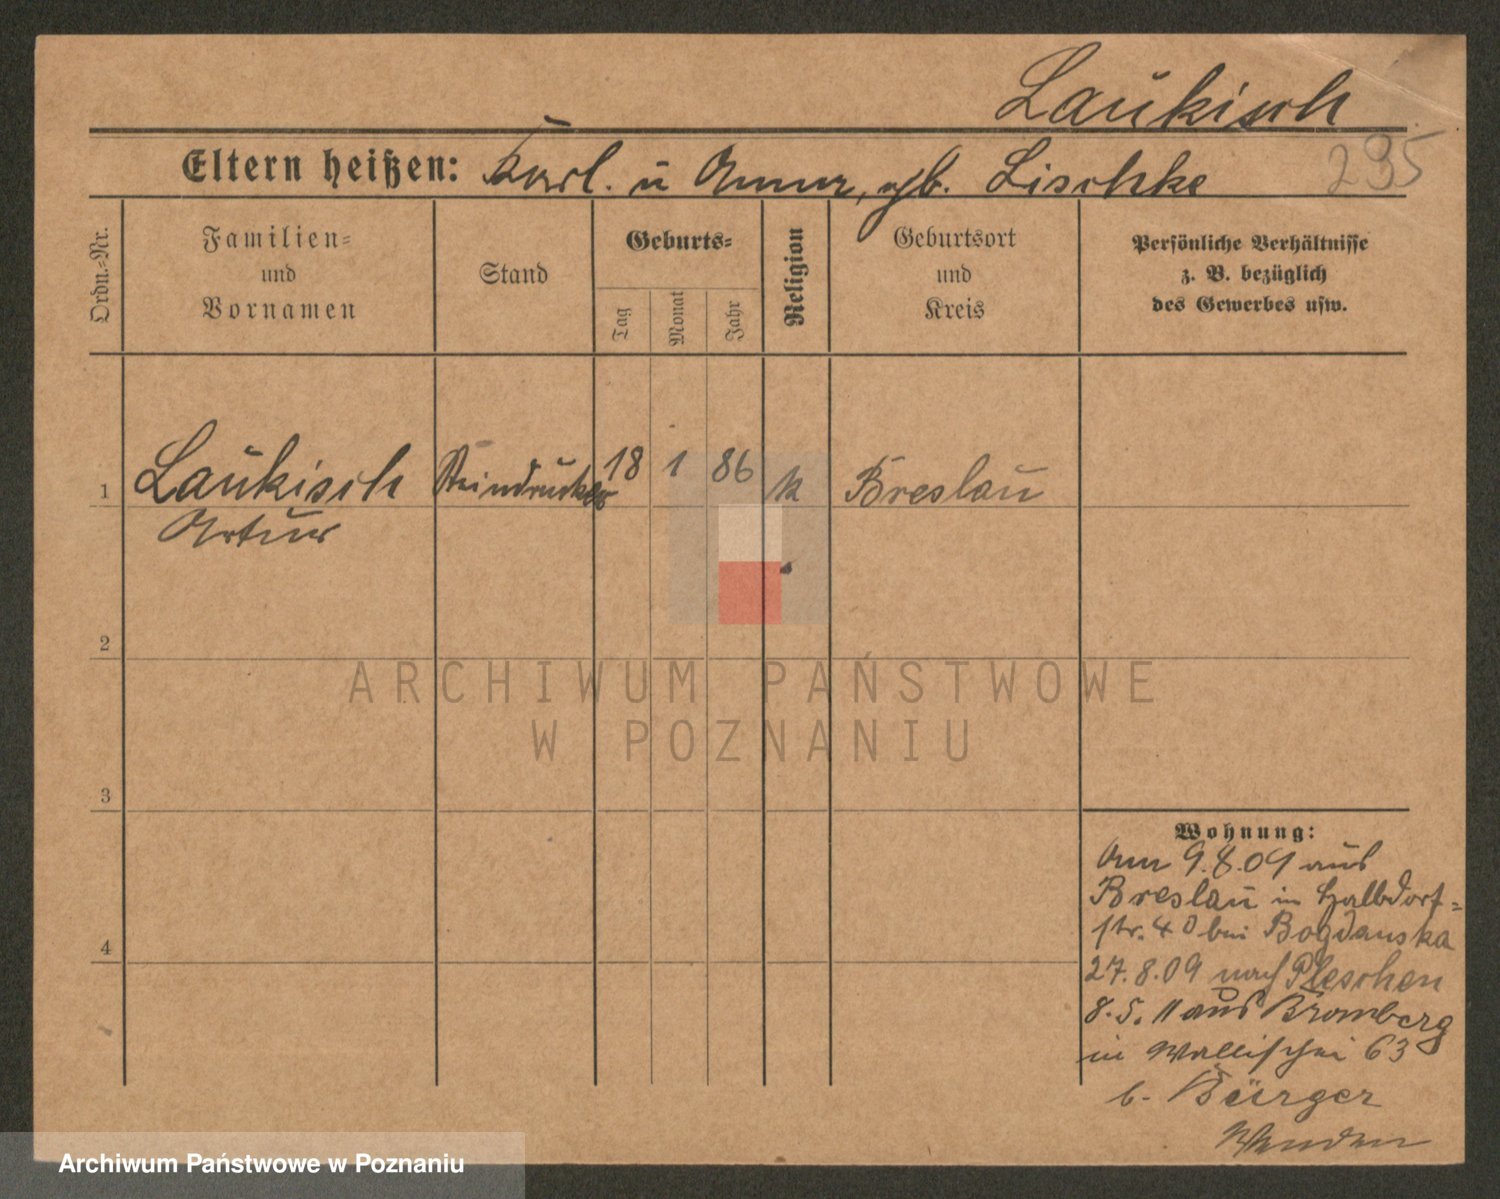 Laukisch
295
Eltern heißen: Karl. u Anna, gb. Lischke
Ordn.=Nr.
Familien=
und
Vornamen
Stand
Geburts=
Tag
Monat
Jahr
Religion
Geburtsort
und
Kreis
Persönliche Verhältnisse
z. B. bezüglich
des Gewerbes usw.
1 Laukisch Steindrucker 18 1 86 k Breslau
Artur
2
3
4
ARCHIWUM PAŃSTWOWE
W POZNANIU
Wohnung:
Am 9.8.09 aus
Breslau in Halbdorf=
str. 40 bei Bogdanska
27.8.09 nach Pleschen
8.5.11 aus Bromberg
in Wallischei 63
b. Bürger
Archiwum Państwowe w Poznaniu